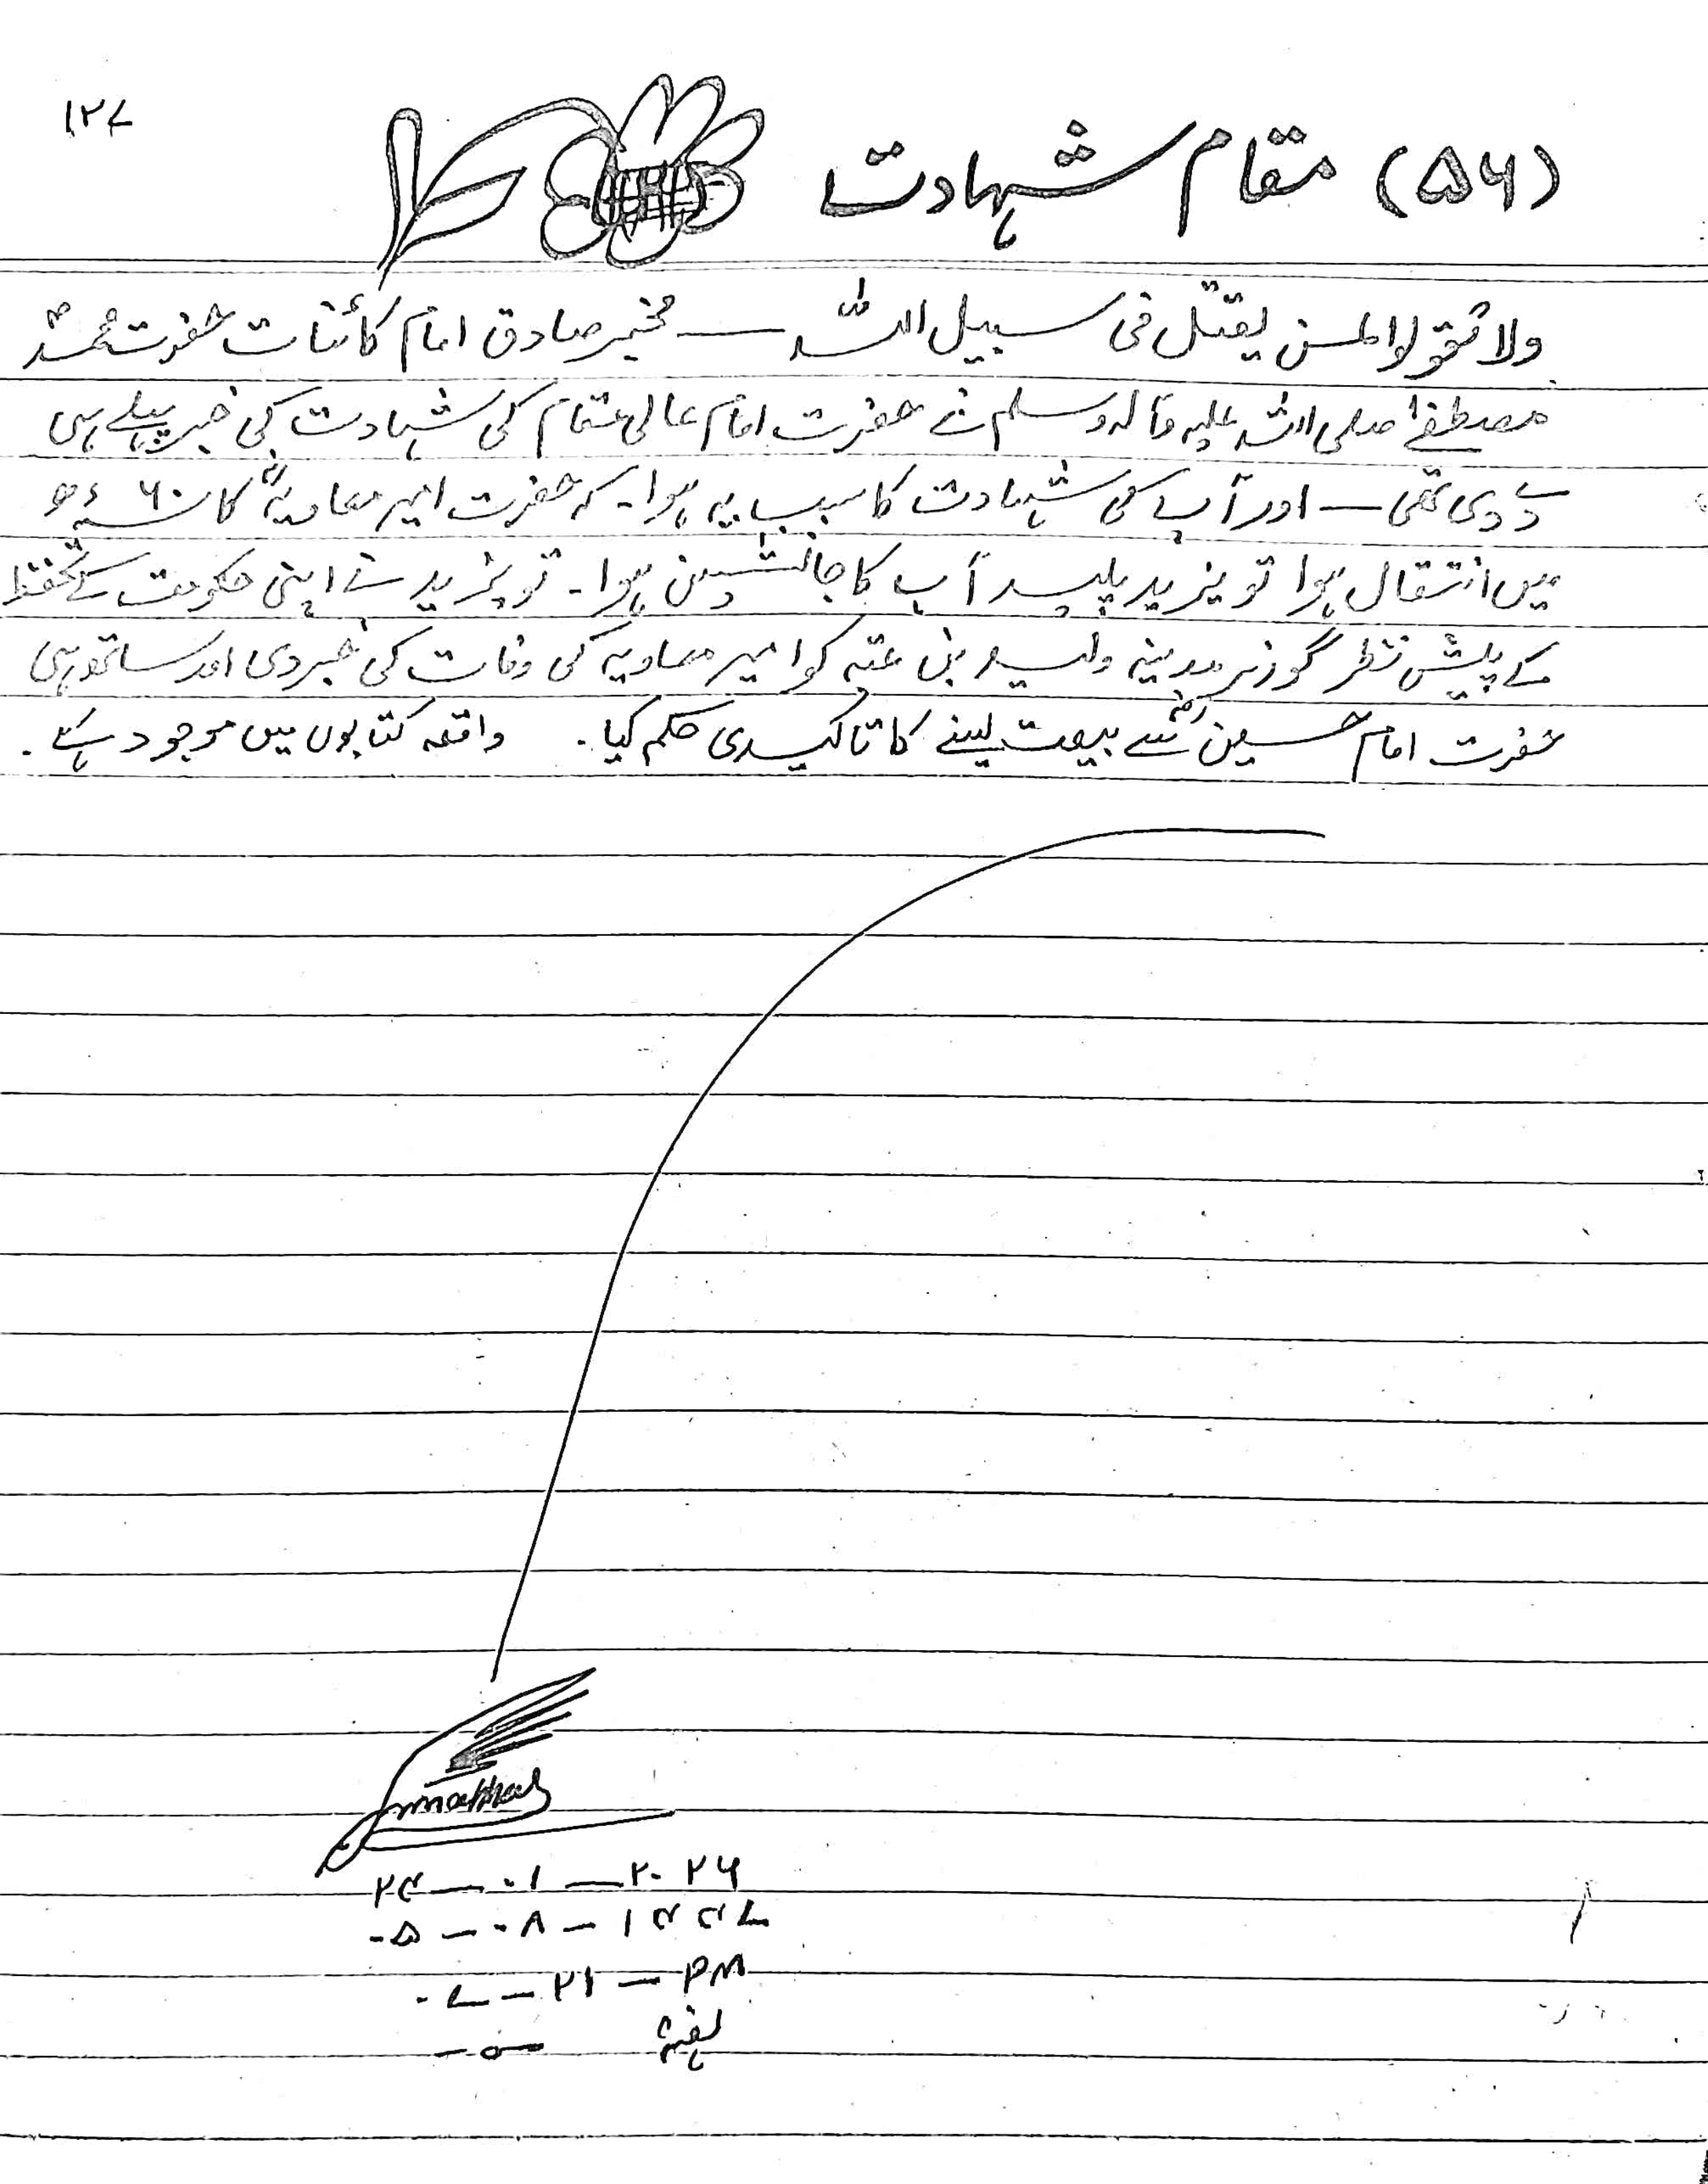 ۱۲۷
(۵۶) مقام شہادت
ولا تقولوا لمن یقتل فی سبیل اللہ — مخبر صادق امام کائنات حضرت محمد
مصطفےٰ صلی اللہ علیہ وآلہ وسلم نے حضرت امام عالی مقام کی شہادت کی خبر پہلے ہی
دے دی تھی — اور آپ کی شہادت کا سبب یہ ہوا۔ کہ حضرت امیر معاویہؓ کا سنہ ۶۰ھ
میں انتقال ہوا تو یزید پلید آپ کا جانشین ہوا۔ تو یزید نے اپنی حکومت کے تحفظ
کے پیش نظر گورنر مدینہ ولید بن عتبہ کو امیر معاویہ کی وفات کی خبر دی اور ساتھ ہی
حضرت امام حسینؓ سے بیعت لینے کا تاکیدی حکم کیا۔ واقعہ کتابوں میں موجود ہے۔
۲۴ — ۰۱ — ۲۰۲۶
۰۵ — ۰۸ — ۱۴۴۷
۰۷ — ۲۱ — PM
ہفتہ